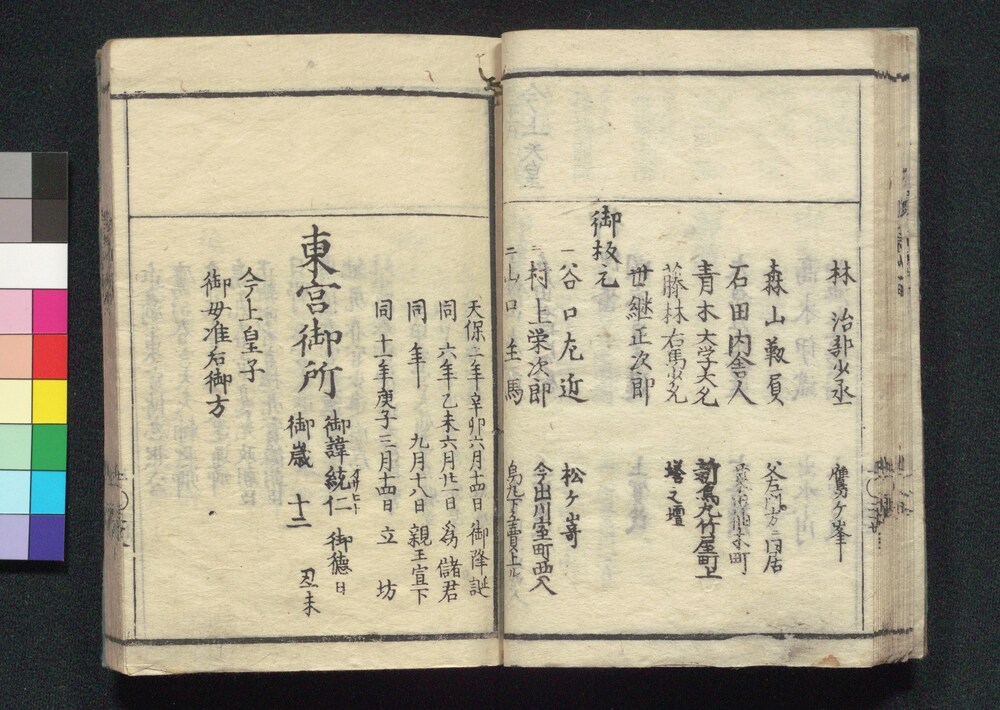 林 治部少丞 鷹ケ峯
森山敼員 父左衛門方ニ同居
石田内舎人 町
青木大学大允 新烏丸竹屋町上
藤林右馬少允 塔之壇
世継正次郎
御板元
一谷口左近 松ヶ嵜
二村上栄次郎 今出川室町西入
三山口主馬 烏丸下
天保二年辛卯六月十四日御降誕
同六年乙未六月廿一日為儲君
同年 九月十八日親王宣下
同十一年庚子三月十四日立坊
東宮御所 御諱統仁 ヲサヒト 御德日
御歳 十二 丑未
今上皇子
御母准后御方